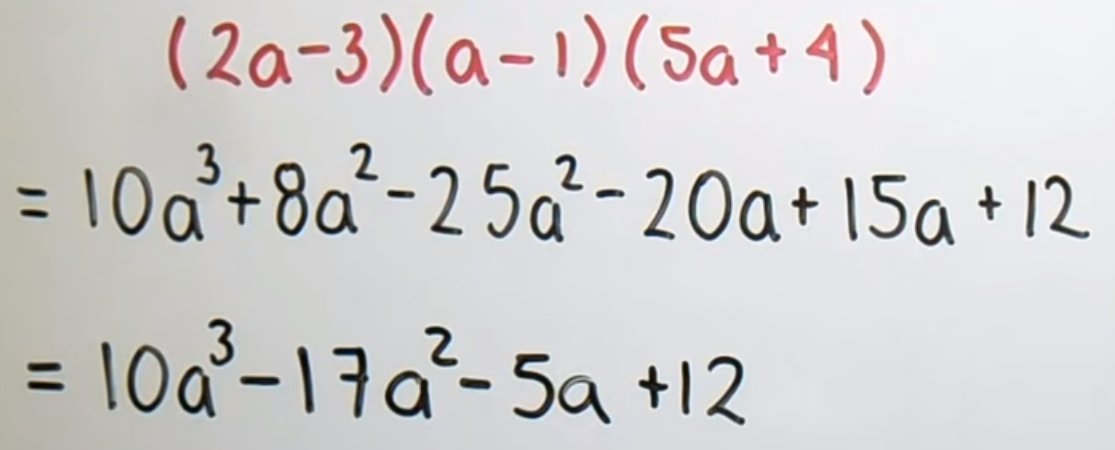 (2a-3)(a-1)(5a+4)
= 10a³+8a²-25a²-20a+15a+12
= 10a³-17a²-5a+12